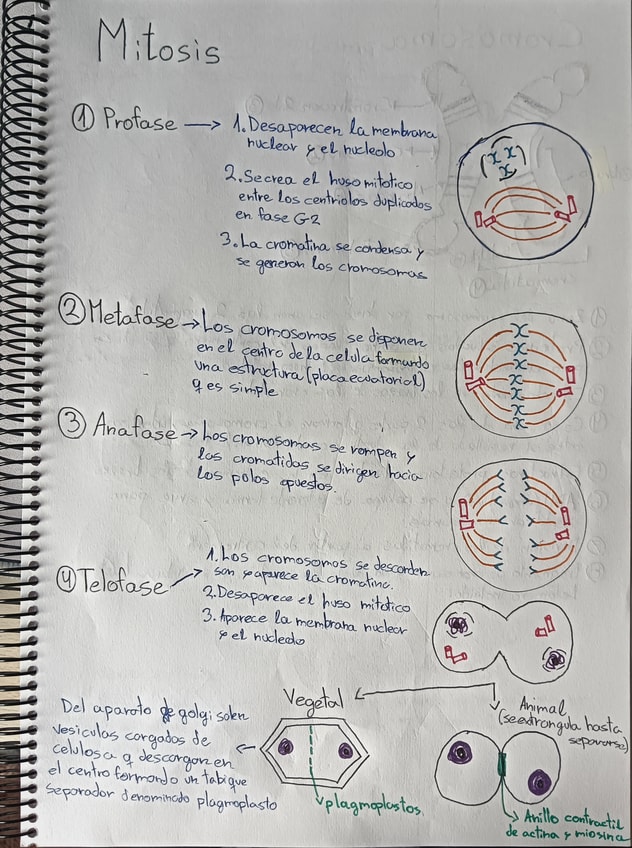 Mitosis
① Profase → 1. Desaparecen la membrana
nuclear y el nucleolo
2. Se crea el huso mitotico
entre los centriolos duplicados
en fase G-2
3. La cromatina se condensa y
se generan los cromosomas
② Metafase → Los cromosomas se disponen
en el centro de la celula formando
una estructura (placa ecuatorial)
q es simple
③ Anafase → Los cromosomas se rompen y
las cromatidas se dirigen hacia
los polos opuestos.
④ Telofase → 1. Los cromosomas se descorden
san y aparece la cromatina.
2. Desaparece el huso mitotico
3. Aparece la membrana nuclear
y el nucleolo
Vegetal
Animal
(se estrangula hasta
separarse)
Del aparato de golgi salen
vesiculas cargadas de
celulosa q descargan en
el centro formando un tabique
separador denominado plagmoplasto
plagmoplastos
Anillo contractil
de actina y miosina